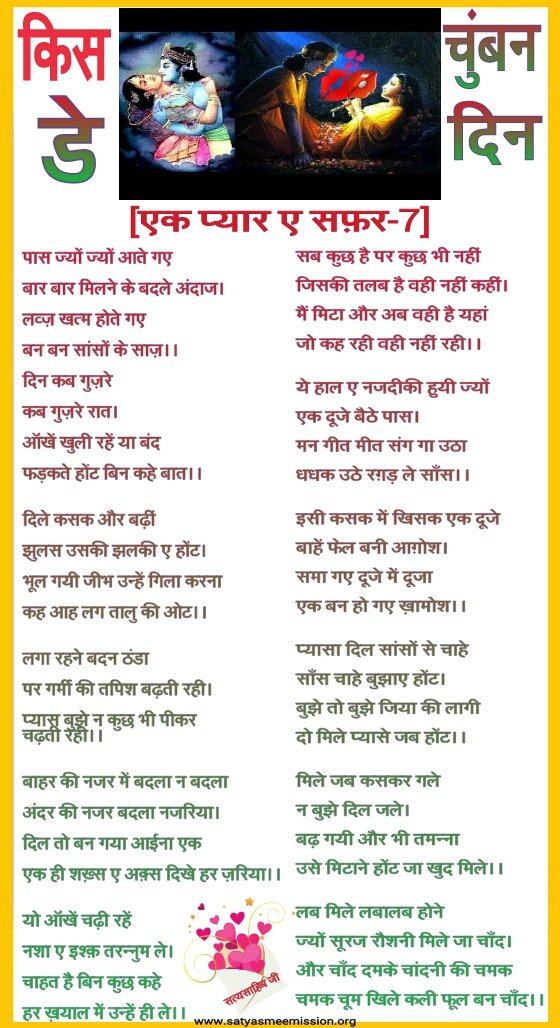 किस
डे
चुंबन
दिन
[एक प्यार ए सफ़र-7]
पास ज्यों ज्यों आते गए
बार बार मिलने के बदले अंदाज।
लव्ज़ खत्म होते गए
बन बन सांसों के साज़।।
दिन कब गुज़रे
कब गुज़रे रात।
आँखें खुली रहें या बंद
फड़कते होंट बिन कहे बात।।
दिले कसक और बढ़ीं
झुलस उसकी झलकी ए होंट।
भूल गयी जीभ उन्हें गिला करना
कह आह लग तालु की ओट।।
लगा रहने बदन ठंडा
पर गर्मी की तपिश बढ़ती रही।
प्यास बुझे न कुछ भी पीकर
चढ़ती रही।।
बाहर की नजर में बदला न बदला
अंदर की नजर बदला नजरिया।
दिल तो बन गया आईना एक
एक ही शख़्स ए अक़्स दिखे हर ज़रिया।।
यो आँखें चढ़ी रहें
नशा ए इश्क़ तरन्नुम ले।
चाहत है बिन कुछ कहे
हर ख़याल में उन्हें ही ले।।
सब कुछ है पर कुछ भी नहीं
जिसकी तलब है वही नहीं कहीं।
मैं मिटा और अब वही है यहां
जो कह रही वही नहीं रही।।
ये हाल ए नजदीकी हुयी ज्यों
एक दूजे बैठे पास।
मन गीत मीत संग गा उठा
धधक उठे रग़ड़ ले साँस।।
इसी कसक में खिसक एक दूजे
बाहें फेल बनी आग़ोश।
समा गए दूजे में दूजा
एक बन हो गए ख़ामोश।।
प्यासा दिल सांसों से चाहे
साँस चाहे बुझाए होंट।
बुझे तो बुझे जिया की लागी
दो मिले प्यासे जब होंट।।
मिले जब कसकर गले
न बुझे दिल जले।
बढ़ गयी और भी तमन्ना
उसे मिटाने होंट जा खुद मिले।।
लब मिले लबालब होने
ज्यों सूरज रौशनी मिले जा चाँद।
और चाँद दमके चांदनी की चमक
चमक चूम खिले कली फूल बन चाँद।।
सत्यसाहिब जी
www.satyasmeemission.org